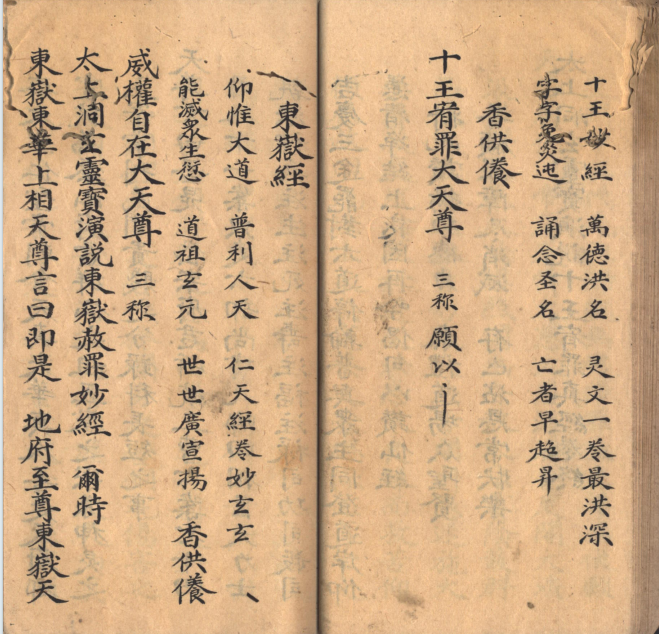 十王妙經 萬德洪名 灵文一卷最洪深
字字免災迍 誦念圣名 亡者早超昇
香供養
十王宥罪大天尊 三称 願以
東嶽經
仰惟大道 普利人天 仁天經卷妙玄玄
能滅衆生愆 道祖玄元 世世廣宣揚 香供養
威權自在大天尊 三称
太上洞玄靈寶演説東嶽赦罪妙經 爾時
東嶽東華上相天尊言曰即是 地府至尊東嶽天